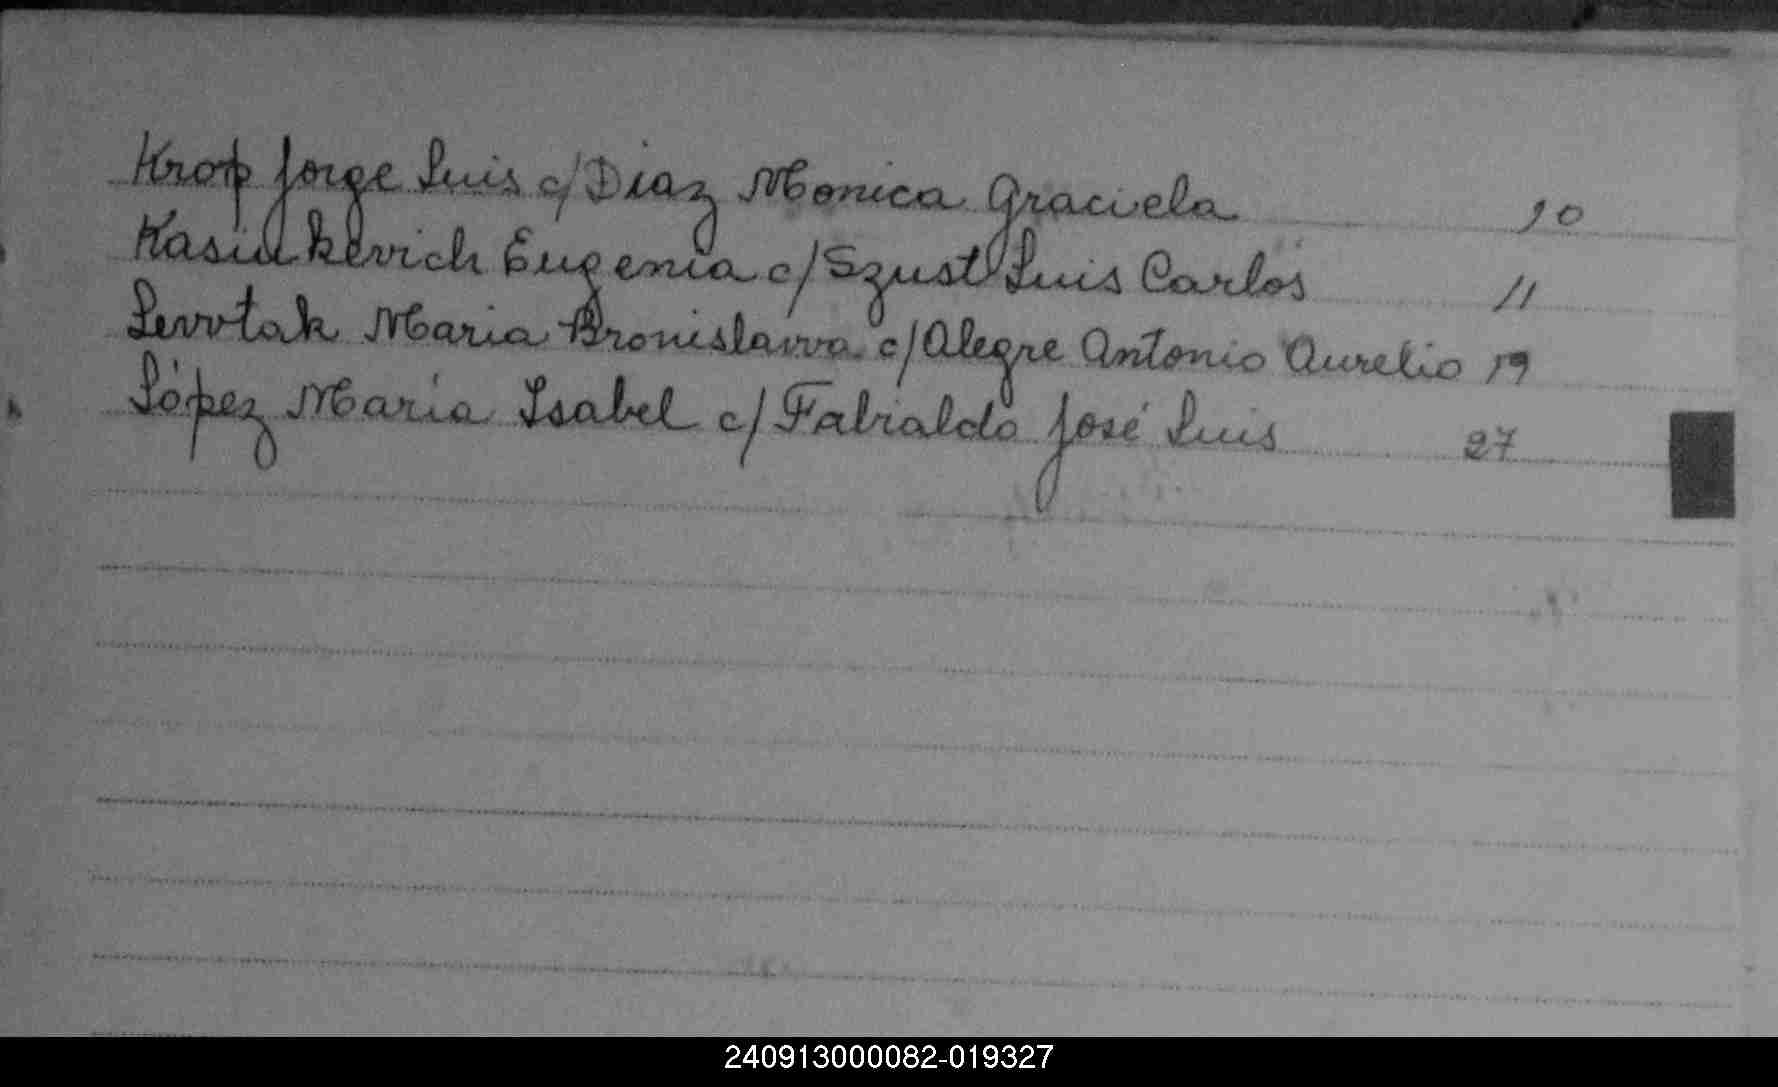 Krop Jorge Luis c/ Diaz Monica Graciela 10
Kasiukevich Eugenia c/ Szust Luis Carlos 11
Lewtak Maria Bronislawa c/ Alegre Antonio Aurelio 19
López María Isabel c/ Fabialdo José Luis 27
240913000082-019327